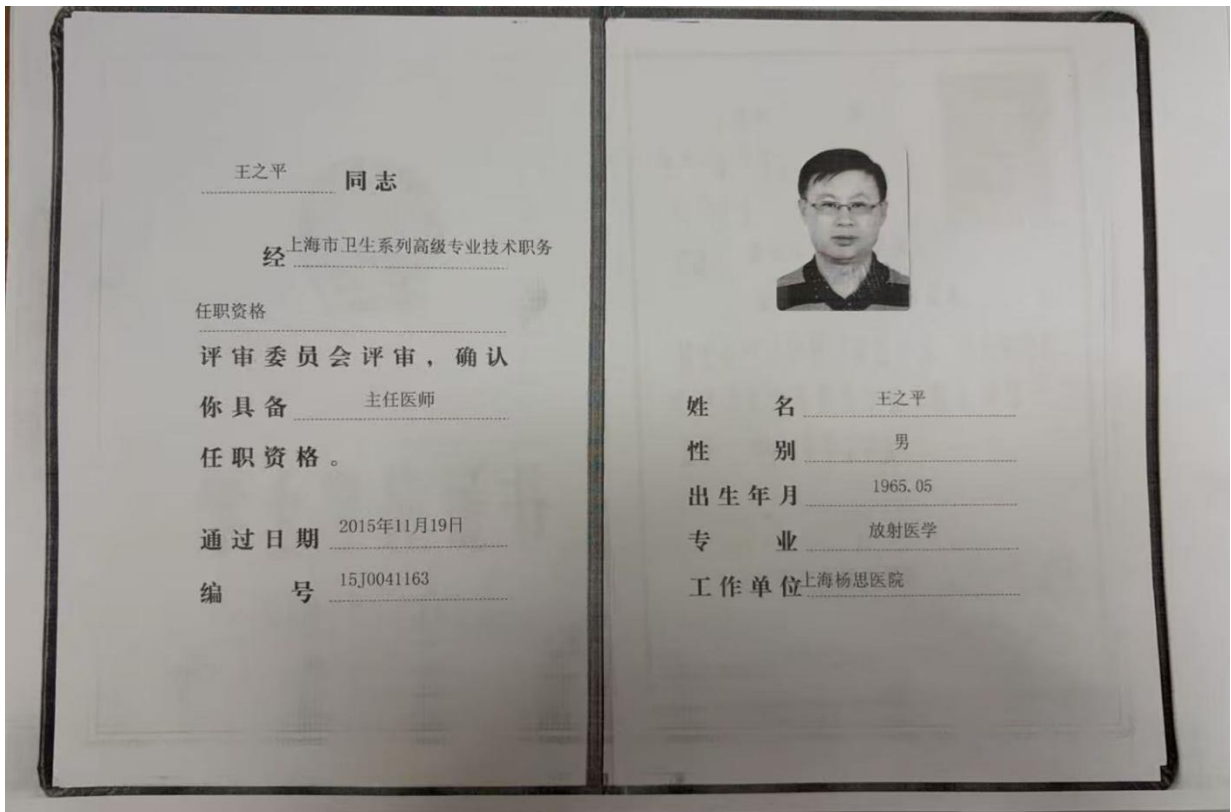 王之平 同志
经上海市卫生系列高级专业技术职务
任职资格
评审委员会评审，确认
你具备 主任医师
任职资格。
通过日期 2015年11月19日
编 号 15J0041163
姓 名 王之平
性 别 男
出生年月 1965.05
专 业 放射医学
工作单位 上海杨思医院